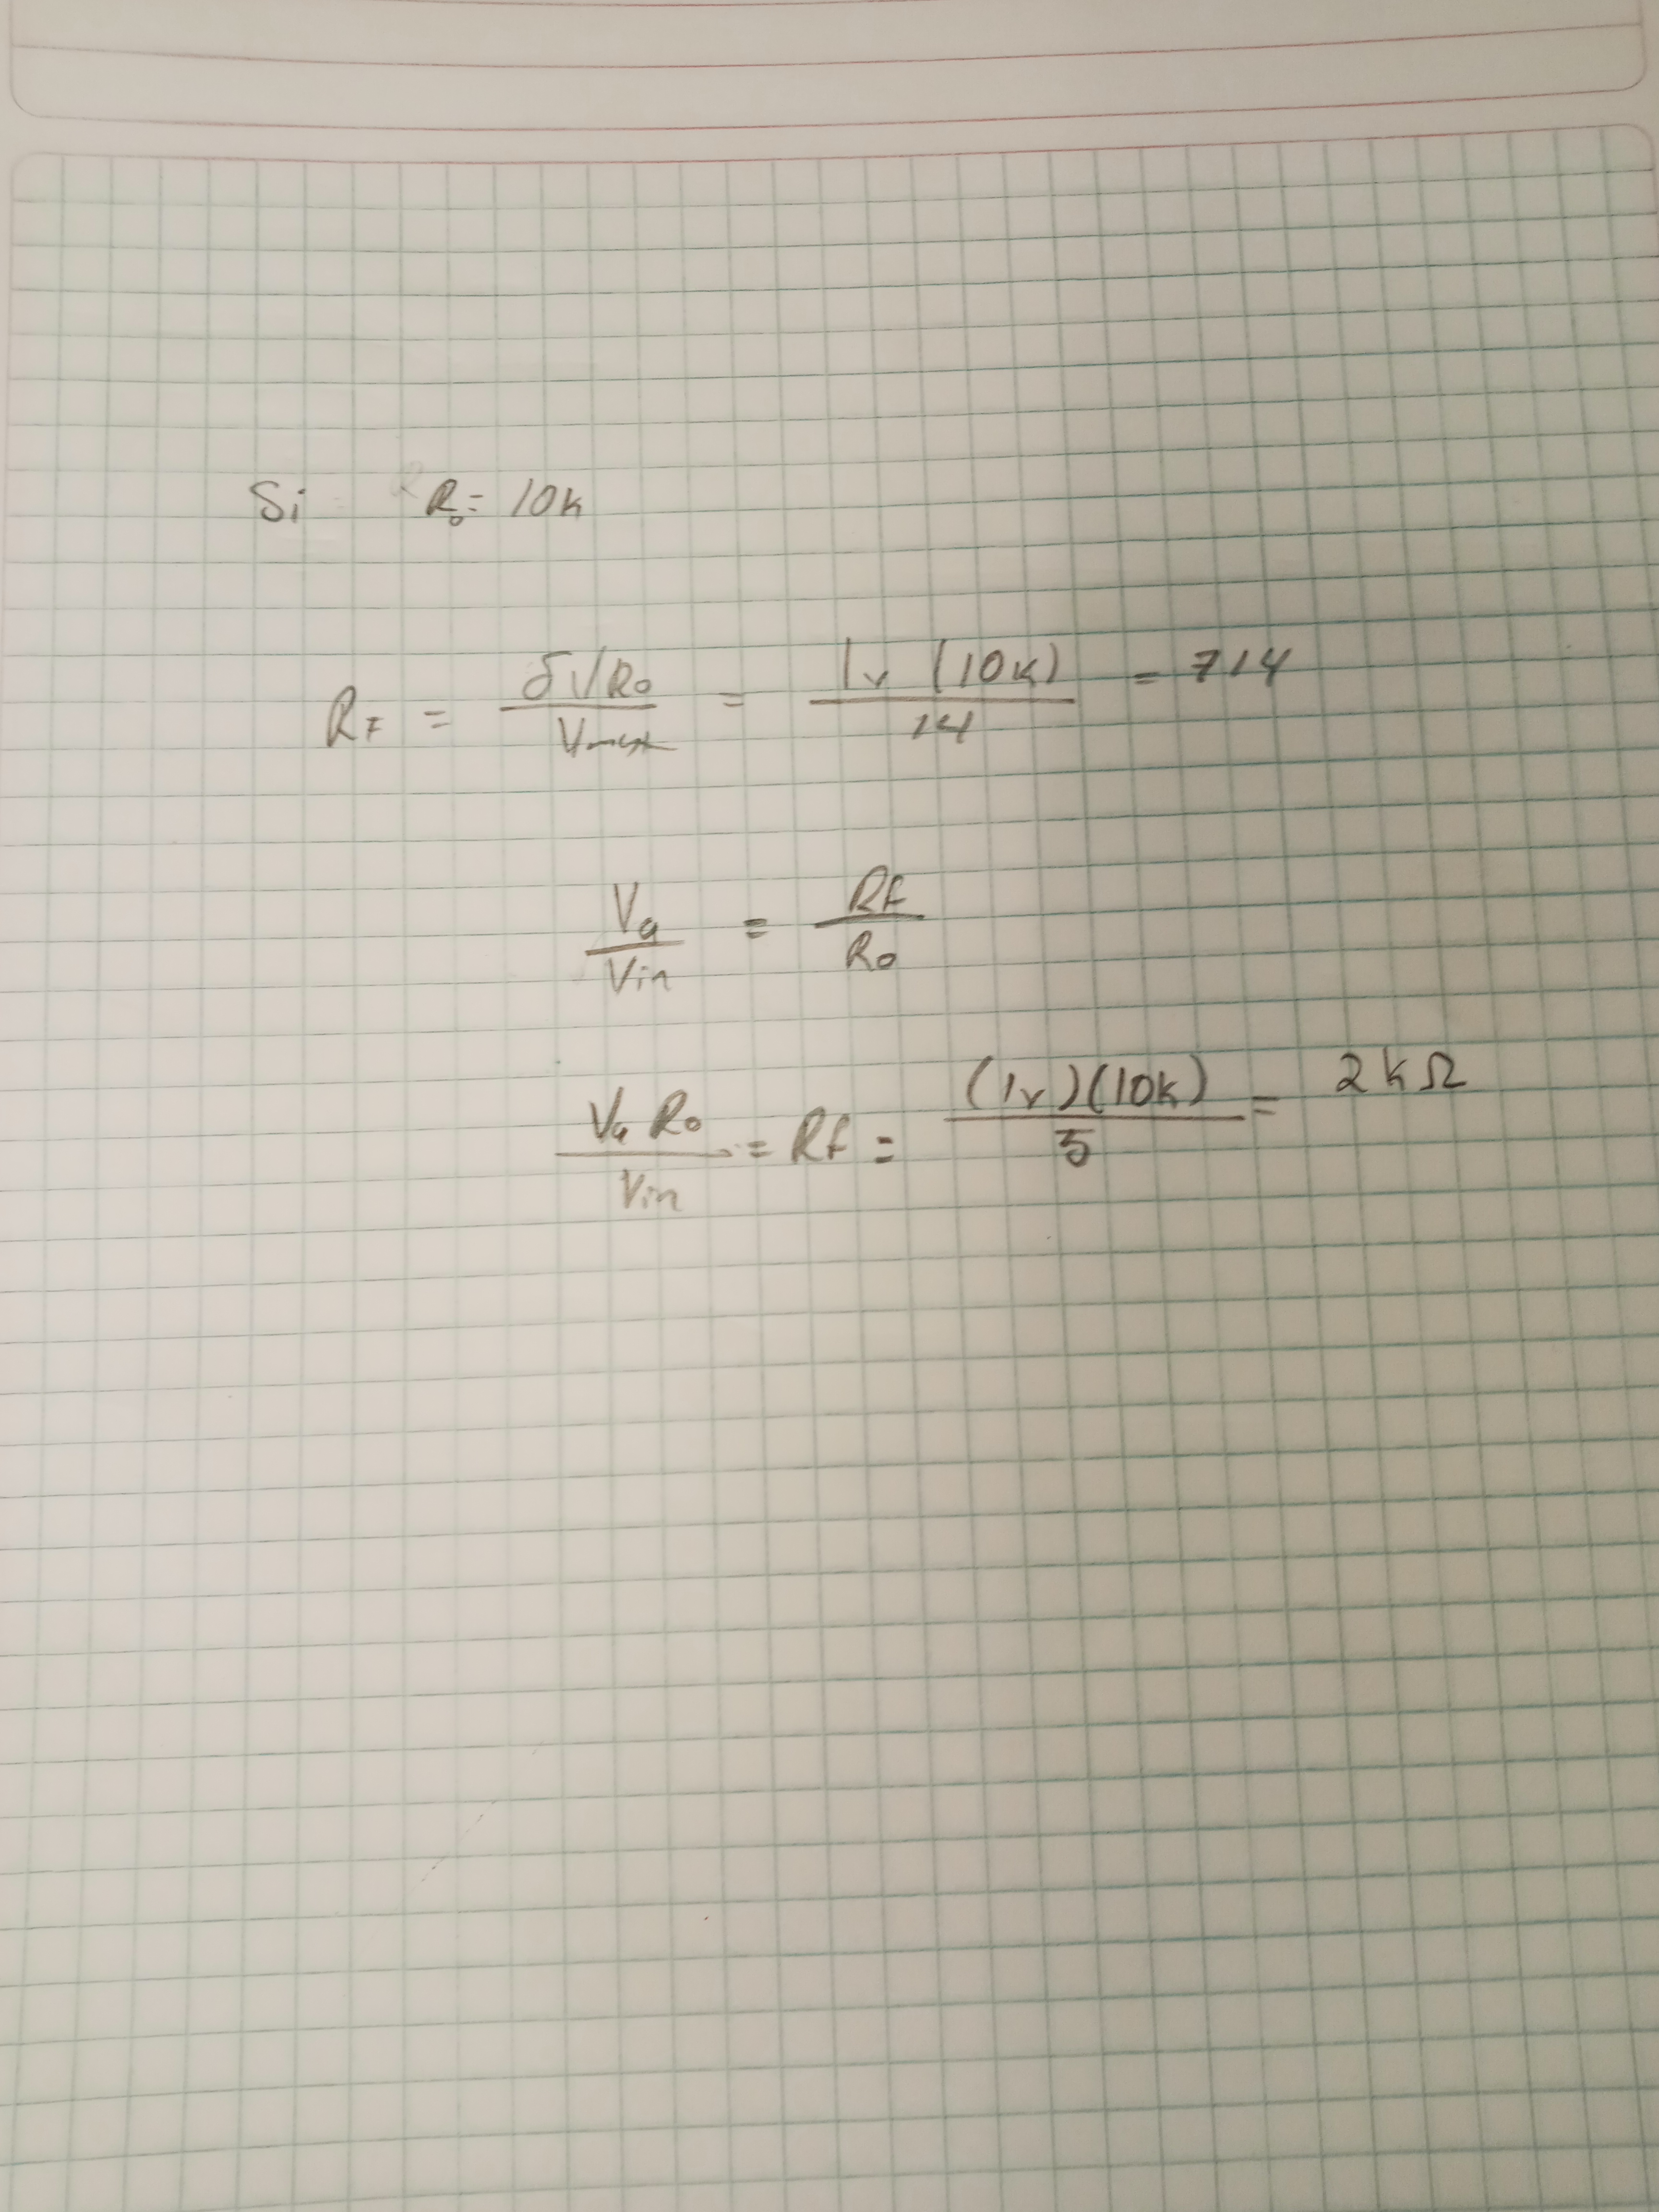 Si R₀ = 10k
R_F = δVR₀ / Vmax = 1v (10k) / 14 = 714
Va / Vin = Rf / R₀
Va R₀ / Vin = Rf = (1v)(10k) / 5 = 2kΩ